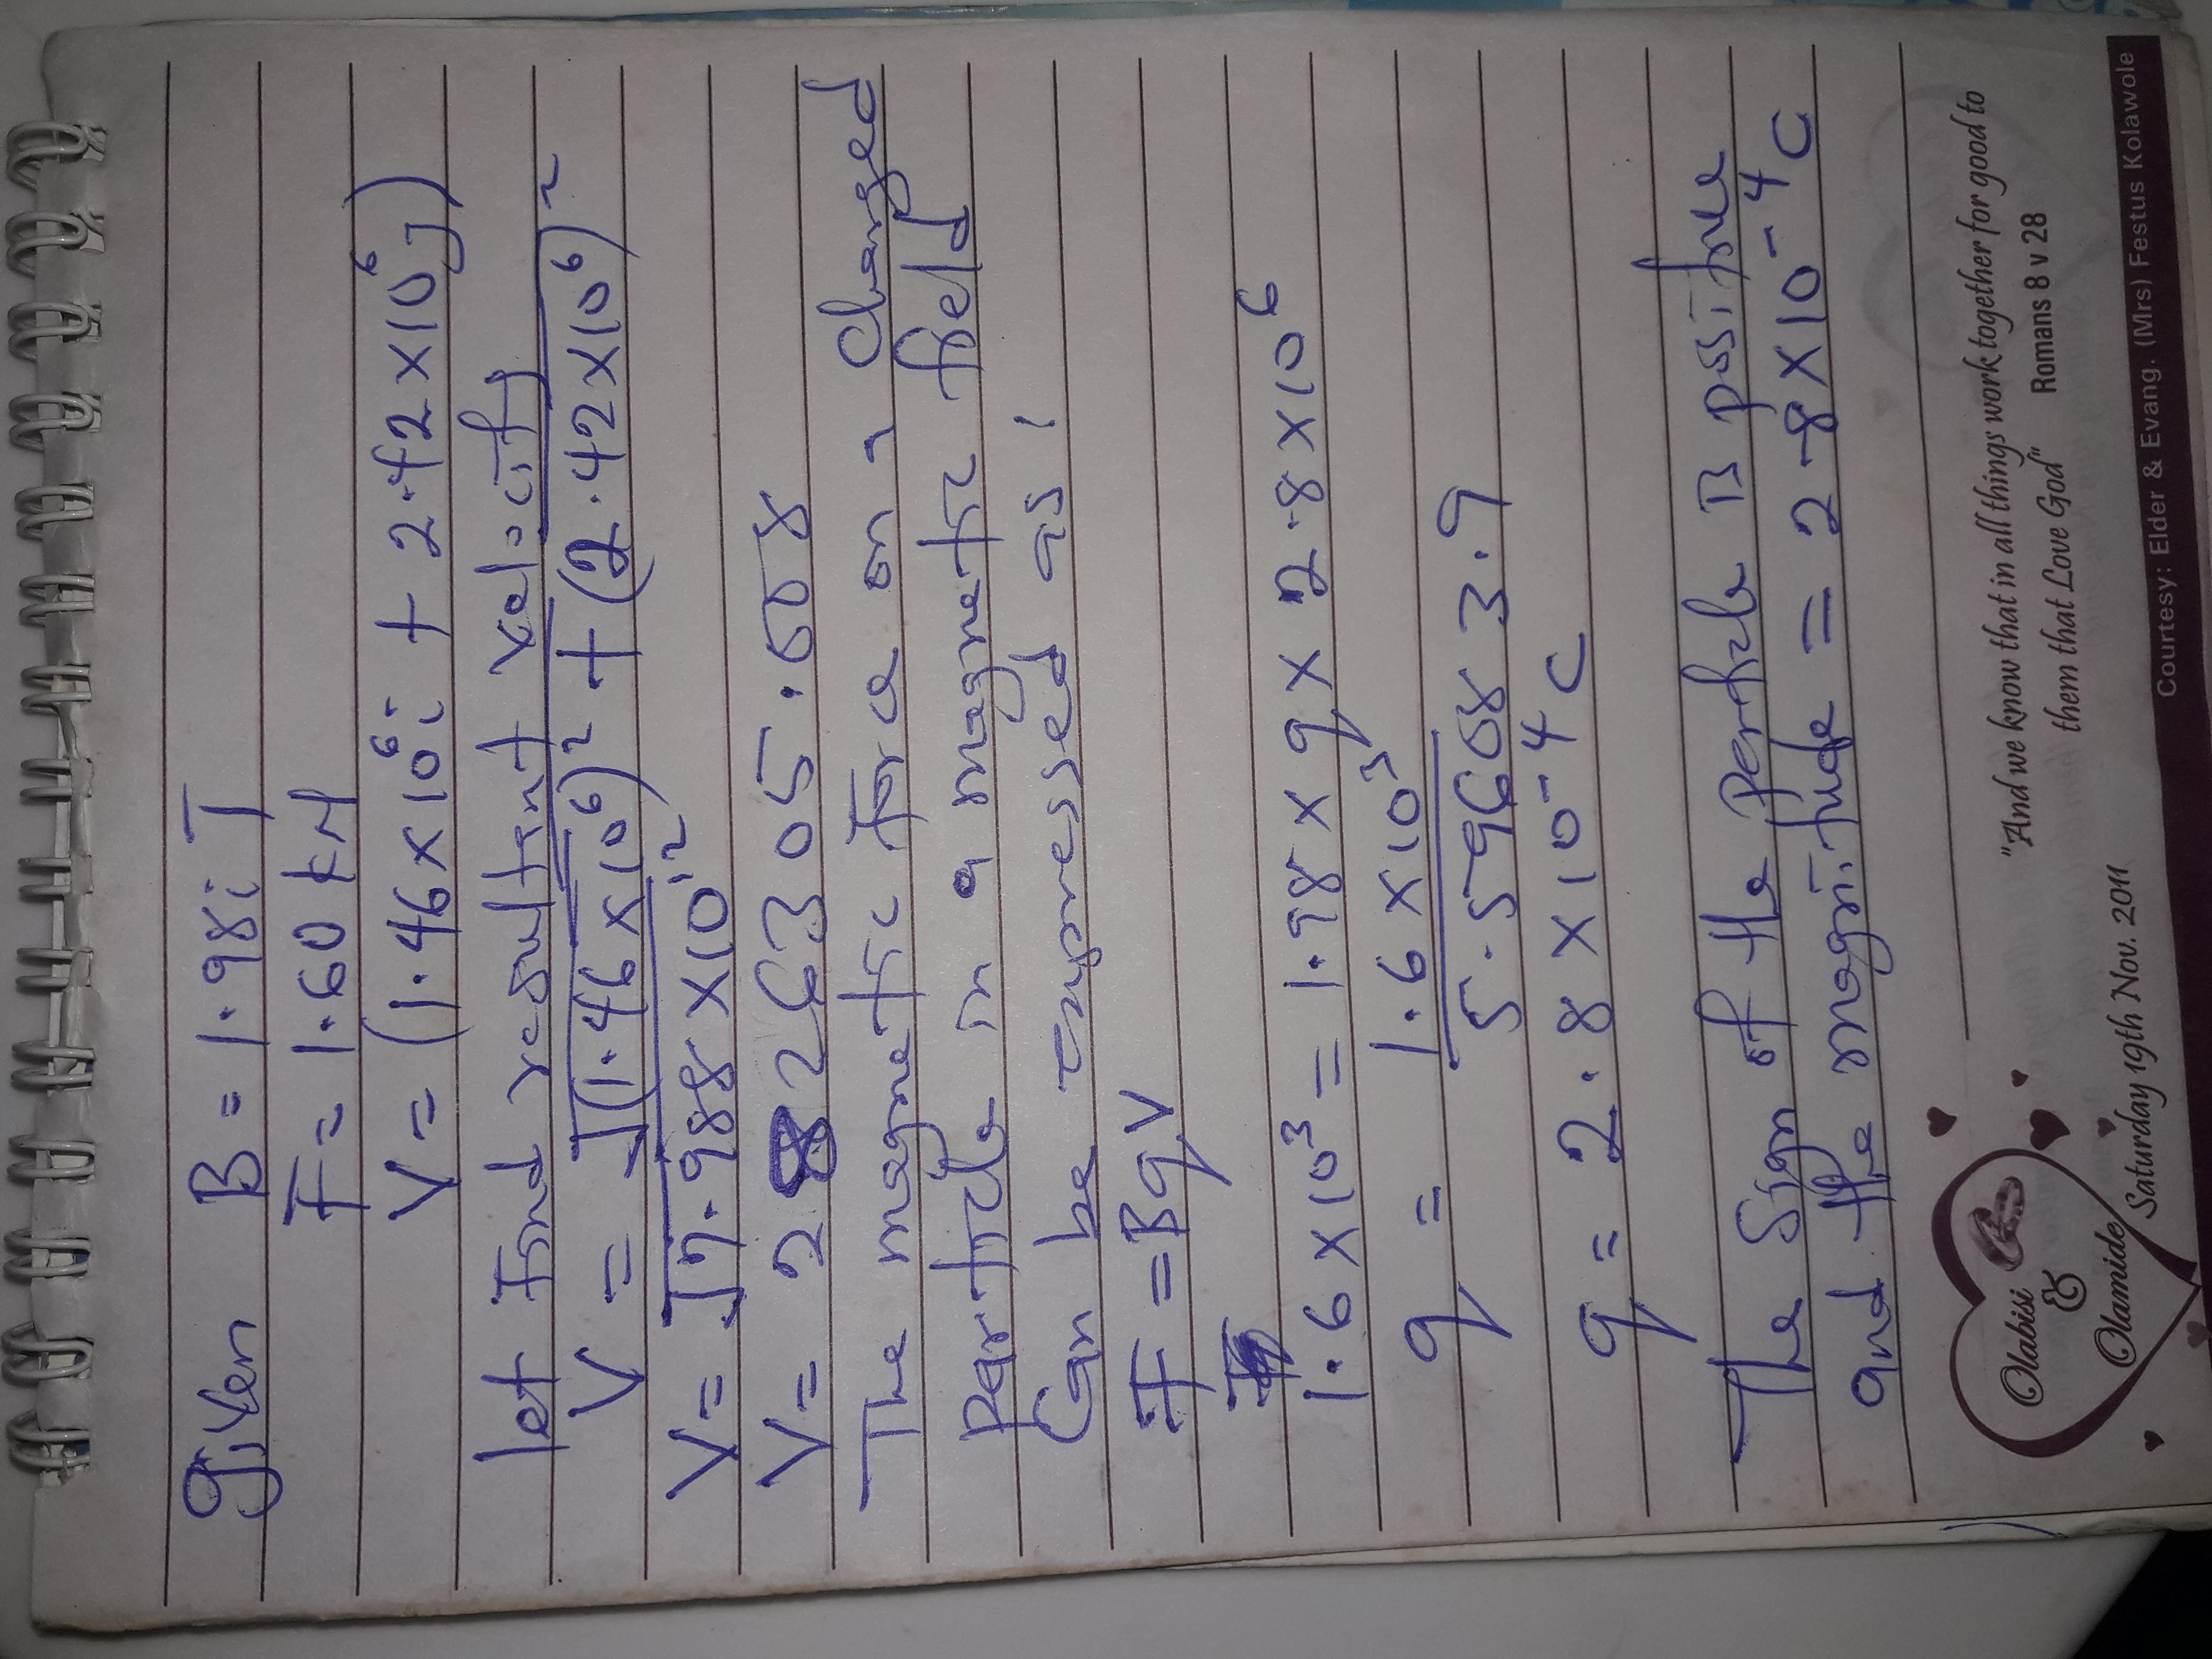 given B = 1.98i T
F = 1.60 kN
V = (1.46 x 10⁶i + 2.42 x 10⁶j)
let find resultant velocity
V = √(1.46 x 10⁶)² + (2.42 x 10⁶)²
V = √7.988 x 10¹²
V = 2826305.008
The magnetic force on a charged
Particle in a magnetic field
can be expressed as;
F = BqV
1.6 x 10³ = 1.98 x q x 2.8 x 10⁶
q = 1.6 x 10³
5.596083.9
q = 2.8 x 10⁻⁴ C
The sign of the particle is positive
and the magnitude = 2.8 x 10⁻⁴ C
Olabisi
&
Olamide
Saturday 19th Nov. 2011
"And we know that in all things work together for good to
them that Love God" Romans 8 v 28
Courtesy: Elder & Evang. (Mrs) Festus Kolawole